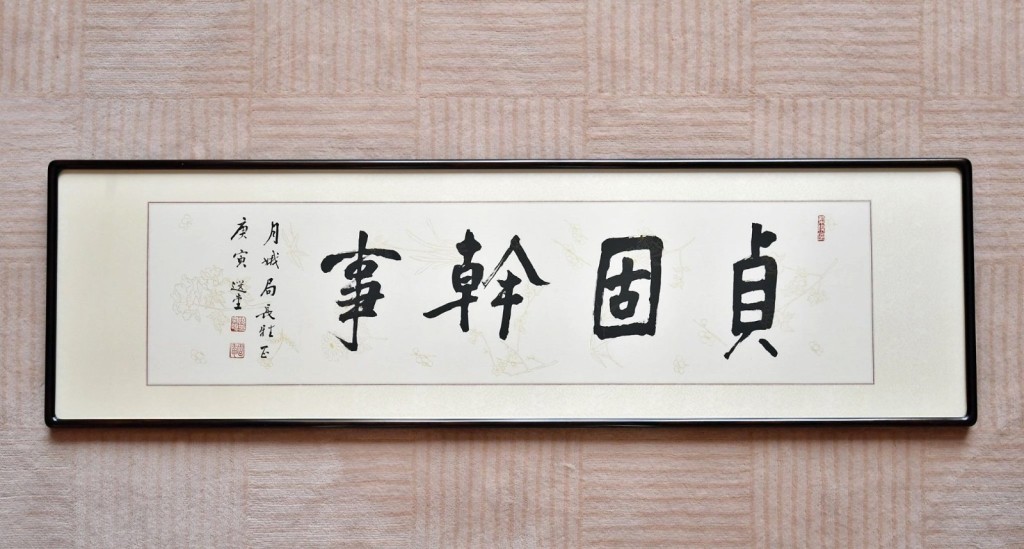 貞固幹事
月娥局長雅正
庚寅 選堂